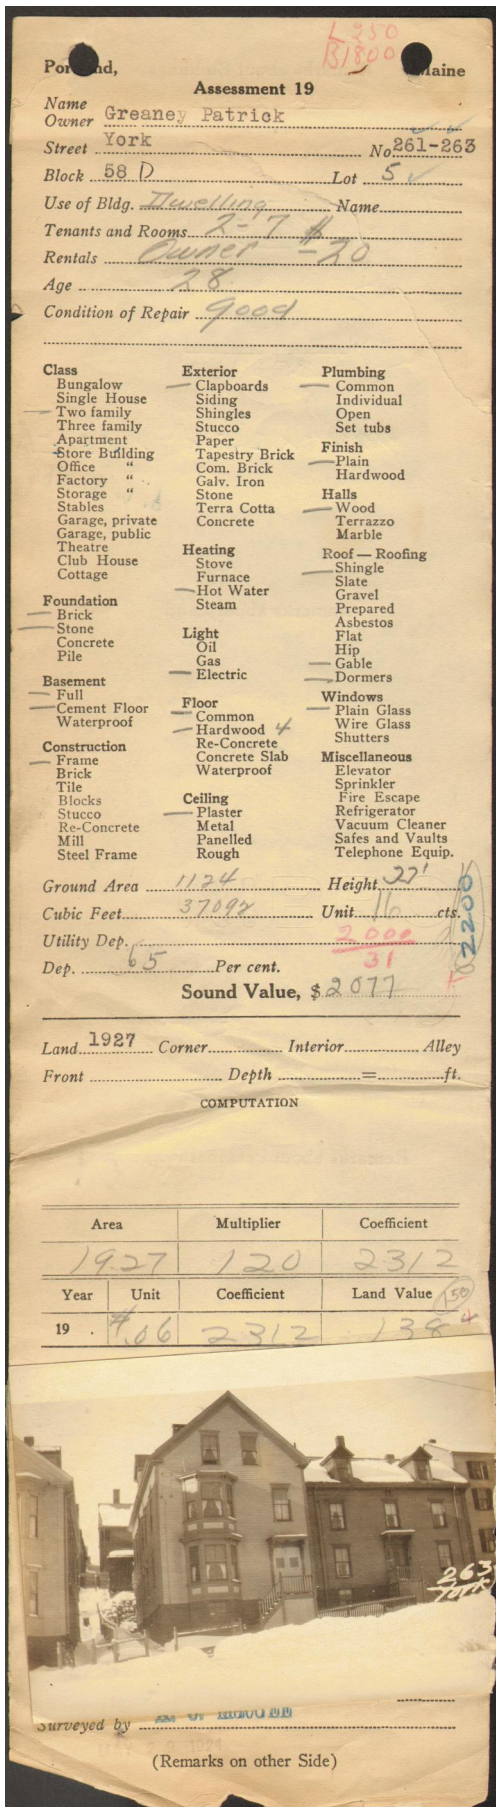 L 250
B1800
Portland, Maine
Assessment 19
Name
Owner Greaney Patrick
Street York No 261-263
Block 58 D Lot 5
Use of Bldg. Dwelling Name
Tenants and Rooms 2-7 $
Rentals Owner - 20
Age 28
Condition of Repair good
Class
Bungalow
Single House
Two family
Three family
Apartment
Store Building
Office "
Factory "
Storage "
Stables
Garage, private
Garage, public
Theatre
Club House
Cottage
Foundation
Brick
Stone
Concrete
Pile
Basement
Full
Cement Floor
Waterproof
Construction
Frame
Brick
Tile
Blocks
Stucco
Re-Concrete
Mill
Steel Frame
Exterior
Clapboards
Siding
Shingles
Stucco
Paper
Tapestry Brick
Com. Brick
Galv. Iron
Stone
Terra Cotta
Concrete
Heating
Stove
Furnace
Hot Water
Steam
Light
Oil
Gas
Electric
Floor
Common
Hardwood 4
Re-Concrete
Concrete Slab
Waterproof
Ceiling
Plaster
Metal
Panelled
Rough
Plumbing
Common
Individual
Open
Set tubs
Finish
Plain
Hardwood
Halls
Wood
Terrazzo
Marble
Roof — Roofing
Shingle
Slate
Gravel
Prepared
Asbestos
Flat
Hip
Gable
Dormers
Windows
Plain Glass
Wire Glass
Shutters
Miscellaneous
Elevator
Sprinkler
Fire Escape
Refrigerator
Vacuum Cleaner
Safes and Vaults
Telephone Equip.
Ground Area 1124 Height 22'
Cubic Feet 37092 Unit 16 cts.
2200
Utility Dep. 2000
31
Dep. 65 Per cent.
Sound Value, $ 2077
Land 1927 Corner Interior Alley
Front Depth = ft.
COMPUTATION
Area Multiplier Coefficient
1927 120 2312
Year Unit Coefficient Land Value 150
19 . $.06 2312 138
263
York
Surveyed by
(Remarks on other Side)